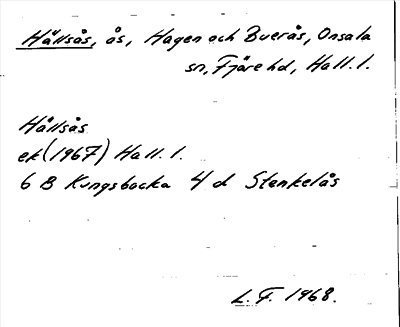 Hällsås, ås, Hagen och Buerås, Onsala
sn, Fjäre hd, Hall. l.
Hållsås
ek (1967) Hall. l.
6 B Kungsbacka 4 d Stenkelås
L. F. 1968.